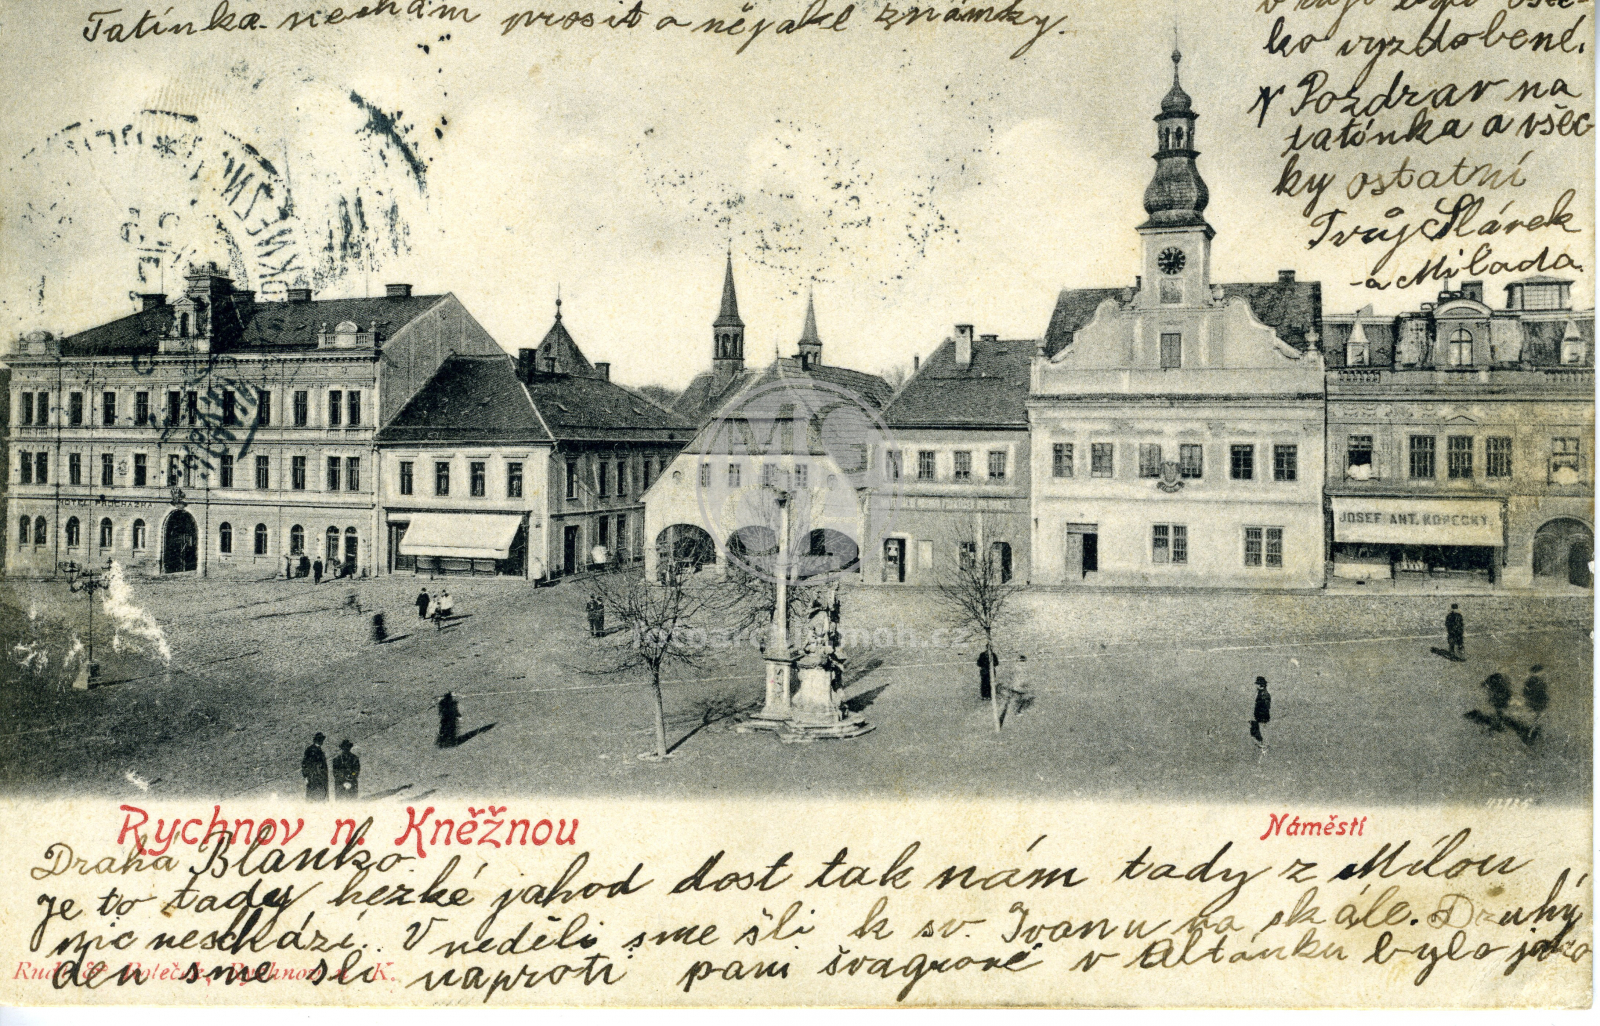 Tatínka nechám prosit o nějaké známky.
ko vyzdobené.
Pozdrav na
tatínka a všec-
ky ostatní
Tvůj Slárek
a Milada.
HOTEL PROCHÁZKA
JOSEF ANT. KOPECKÝ
fotoarchivmoh.cz
Rychnov n. Kněžnou
Náměstí
Drahá Blanko.
Je to tady hezké jahod dost tak nám tady z Mílou
nic neschází. V neděli sme šli k sv. Ivanu na skále. Druhý
den sme šli naproti paní švagrové v Altánku bylo jako
Rychnov n. K.